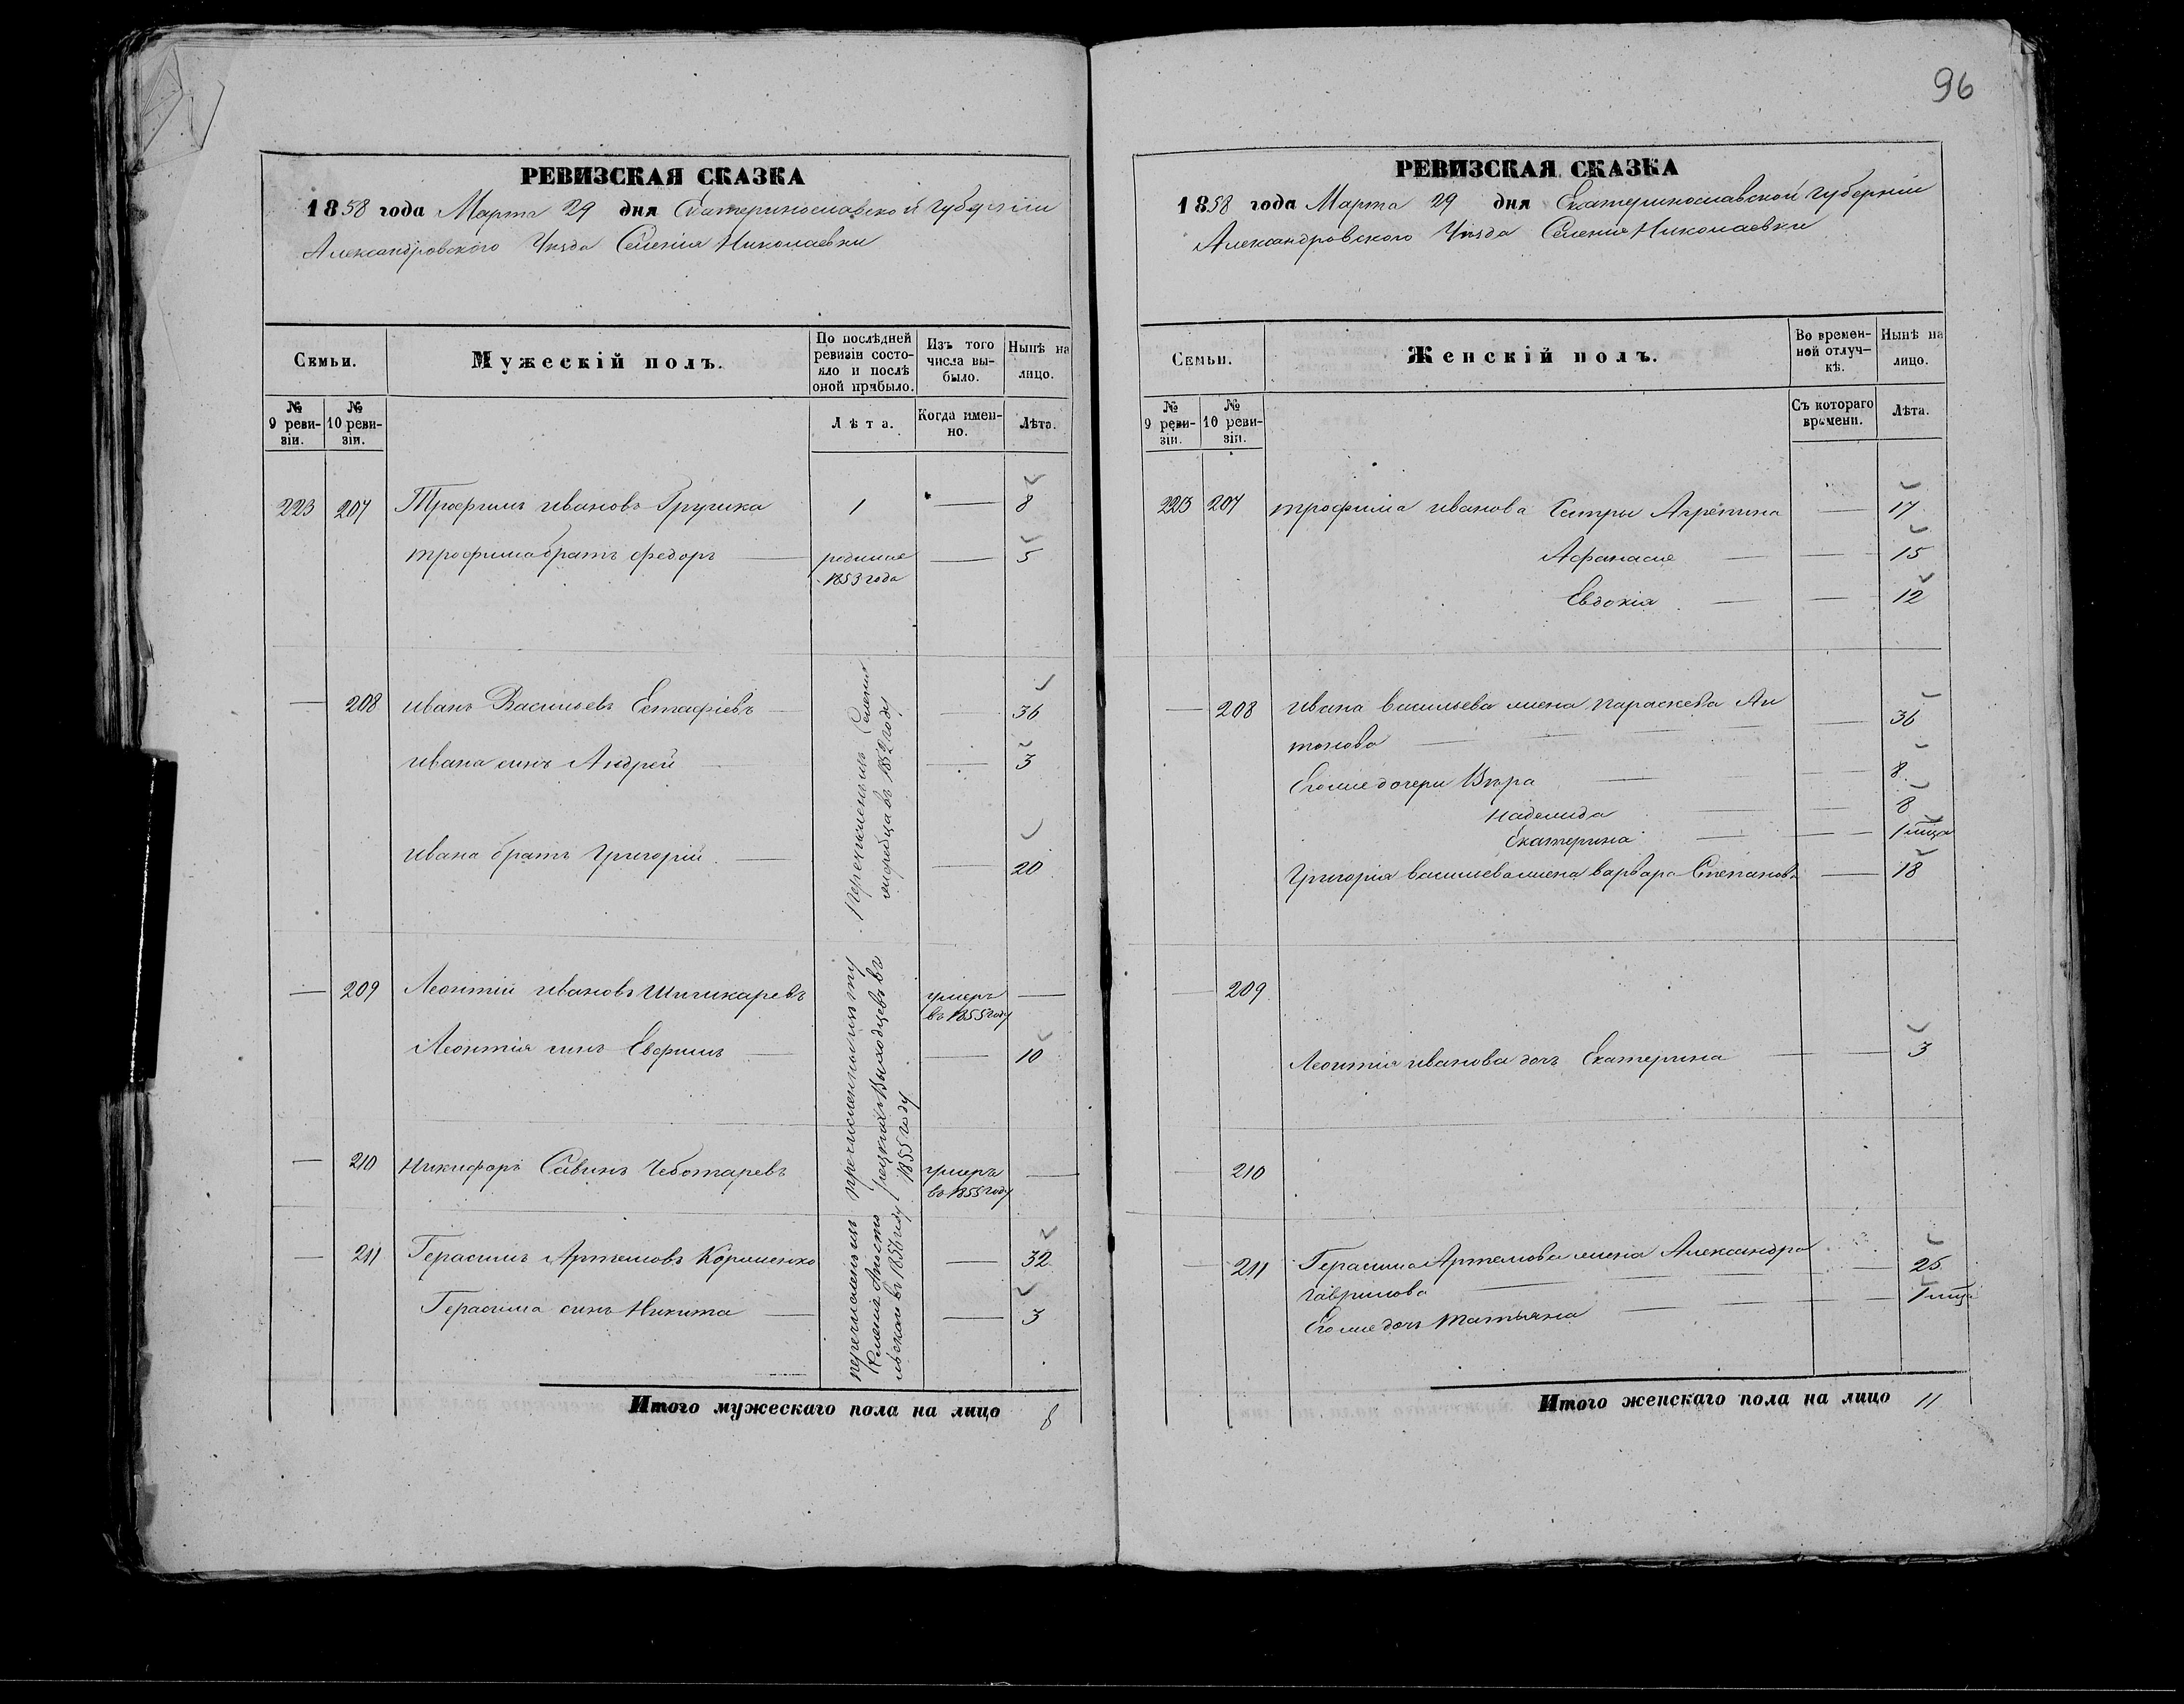 96
РЕВИЗСКАЯ СКАЗКА
1858 года Марта 29 дня Екатеринославской Губерніи
Александровского Уѣзда Селенія Николаевки
Семьи.
Мужескій полъ.
По послѣдней ревизіи состояло и послѣ оной прибыло.
Изъ того числа выбыло.
Нынѣ на лицо.
№ 9 ревизіи.
№ 10 ревизіи.
Лѣта.
Когда именно.
Лѣта.
223 207 Трофимъ Ивановъ 1 — 8
Трофима братъ Федоръ — родился 1853 года — 5
— 208 Иванъ Васильевъ Естафіевъ — — 36
Ивана сынъ Андрей — — 3
Ивана братъ Григорій — — 20
Перечисленъ изъ Селенія
въ 1852 году
— 209 Леонтій Ивановъ Шишкаревъ умеръ въ 1855 году —
Леонтія сынъ Евфимъ — — 10
— 210 Никифоръ Савинъ Чеботаревъ умеръ въ 1855 году —
Выходцевъ въ
1855 году
— 211 Герасимъ Артемовъ — 32
Герасима сынъ Никита — — 3
перечисленъ изъ
Селенія
въ 1856 году
Итого мужескаго пола на лицо 8
РЕВИЗСКАЯ СКАЗКА
1858 года Марта 29 дня Екатеринославской Губерніи
Александровского Уѣзда Селенія Николаевки
Семьи.
Женскій полъ.
Во временной отлучкѣ.
Нынѣ на лицо.
№ 9 ревизіи.
№ 10 ревизіи.
Съ котораго времени.
Лѣта.
223 207 Трофима Иванова Сестры — 17
Афанасія — — 15
Евдокія — — 12
— 208 Ивана Васильева жена Параскева Ан
тонова — — — 36
Его же дочери Вѣра — — 8
Надежда — — 8
Екатерина — — 1 мѣсца
Григорія Васильева жена Варвара Степанова — 18
— 209
Леонтія Иванова дочь Екатерина — — 3
— 210
— 211 Герасима Артемова жена Александра
Гаврилова — — — 25
Его же дочь Татьяна — — 1 мѣсца
Итого женскаго пола на лицо 11